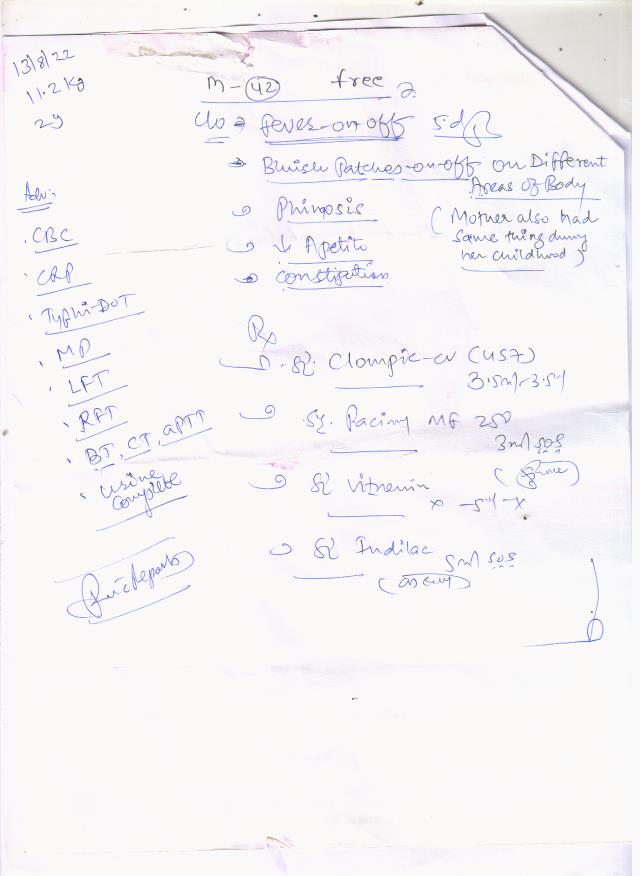 13/8/22
11.2 Kg
2y
M - 42 free
C/o → fever-on-off 5-d
→ Bluish Patches-on-off on Different
Areas of Body
(Mother also had
same thing during
her childhood)
Phimosis
↓ Apetite
Constipation
Adv:-
CBC
CRP
Typhi-DOT
MP
LFT
RFT
BT, CT, aPTT
Urine
Complete
Rx
Sy. Clompic-cv (457)
3.5ml-3.5ml
Sy. Pacimy MF 250
3ml SOS
Sy Vitnemin
x -5ml-x
Sy Indilac
5ml SOS